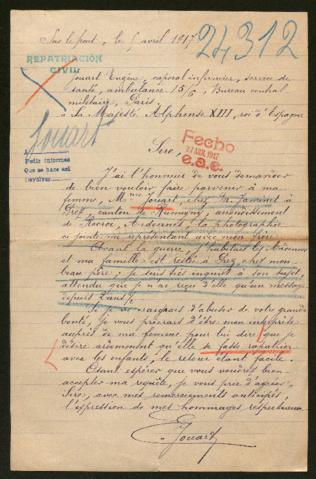 Sur le front, le 5 avril 1917
24,312
REPATRIACIÓN
CIVIL
Jouart Eugène, caporal infirmier, service de
santé, ambulance 15/5, Bureau central
militaire, Paris
à Sa Majesté Alphonse XIII, roi d'Espagne
Jouart
Petit informes
Que se hace así
Sire,
Fecho
27 ABR. 1917
e.a.e.
J'ai l'honneur de vous demander
de bien vouloir faire parvenir à ma
femme, Mme Jouart, chez M.
canton de Rumigny, arrondissement
de Rocroi, Ardennes, la photographie
ci-jointe me représentant avec mon frère.
Avant la guerre, j'habitais
et ma famille est restée à chez mon
beau père; je suis très inquiet à son sujet,
attendu que je n'ai reçu d'elle qu'un message
depuis 2 ans ½.
Si je ne craignais d'abuser de votre grande
bonté, je vous prierais d'être mon interprète
auprès de ma femme pour lui dire que je
désire ardemment qu'elle se fasse rapatrier
avec les enfants, le retour étant facile.
Osant espérer que vous voudrez bien
accepter ma requête, je vous prie d'agréer,
Sire, avec mes remerciements anticipés,
l'expression de mes hommages respectueux.
E. Jouart